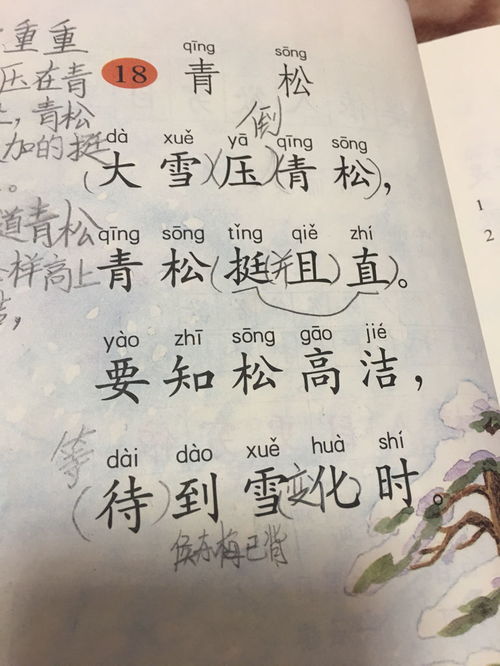 重重
压在青
qīng sōng
18 青 松
，青松
倒
加的挺
。
dà xuě yā qīng sōng
(大 雪)(压)(青 松)，
道青松
qīng sōng tǐng qiě zhí
青 松(挺(并且)直)。
样高上
yào zhī sōng gāo jié
要 知 松 高 洁，
等
dài dào xuě huà shí
(待)到 雪(变化 时。
侯东梅已背
1
2